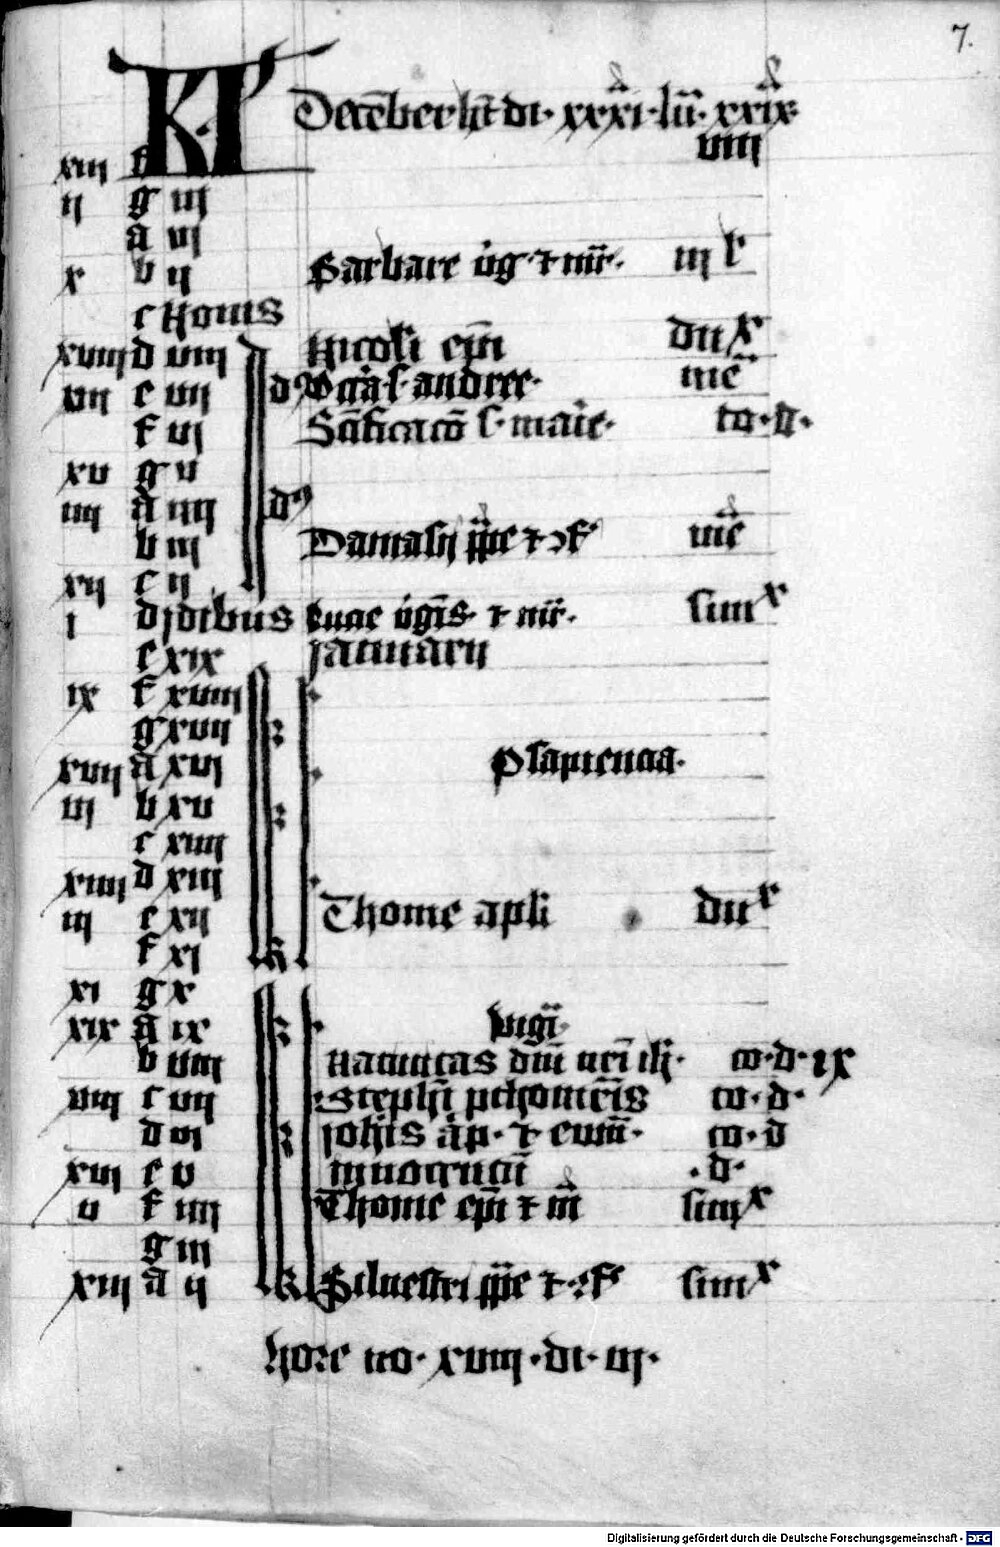 7.
KL Decēber hꝫ di. xxxi. lūa. xxix.
xiii f viii
ii g iii
A iij
x b ii Barbare v̄g. ⁊ mr̄. iii l
c Nonis
xviii d viii d Nicoli epī du x
vii e vii d⁹ Octa s. andree. me
f vi Sāctificacō s. marie. to. d.
xv g v
iiii A iiii d⁹
b iii Damasii pp̄e ⁊ ɔf. me
xii c ii
i d idibus Lucie v̄gīs. ⁊ mr̄. simx
e xix Januarii
ix f xviii
g xvii
xvii A xvi O sapiencia.
vi b xv
c xiiii
xiiii d xiii
iii e xii Thome apli du x
f xi
xi g x
xix A ix vigī.
b viii Natiuitas dnī nrī ih̄. to. d. ix
viii c vii Stephī pthomrīs to. d.
d vi Joh̄is ap. ⁊ euuā. to. d
xvi e v Innocentū .d.
v f iiii Thome epī ⁊ m̄ simx
g iii
xiii A ii Siluestri pp̄e ⁊ ɔf. simx
hore no. xviii. di. vi.
Digitalisierung gefördert durch die Deutsche Forschungsgemeinschaft - DFG